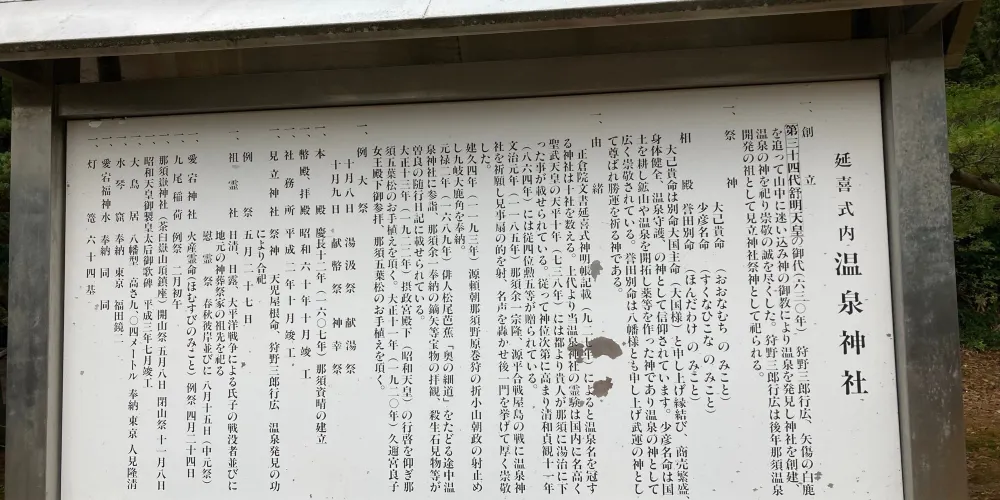 延喜式内 温泉神社
一、創立
第三十四代舒明天皇の御代(六三〇年) 狩野三郎行広、矢傷の白鹿
を追って山中に迷い込み神の御教により温泉を発見し神社を創建、
温泉の神を祀り崇敬の誠を尽くした。狩野三郎行広は後年那須温泉
開発の祖として見立神社祭神として祀られる。
一、祭神
大己貴命 (おおなむち の みこと)
少彦名命 (すくなひこな の みこと)
相殿 誉田別命 (ほんだわけ の みこと)
大己貴命は別命大国主命(大国様)と申し上げ縁結び、商売繁盛、
身体健全、温泉守護、の神として信仰されています。少彦名命は国
土を耕し鉱山や温泉を開拓し薬等を作った神であり温泉の神として
広く崇敬されている。誉田別命は八幡様とも申し上げ武運の神とし
て尊ばれ勝運を祈る神である。
一、由緒
正倉院文書延喜式神明帳記載(九二七年)によると温泉名を冠す
る神社は十社を数える。上代より当温泉神社の霊験は国内に名高く
聖武天皇の天平十年(七三八年)には都より貴人が那須に湯治に下
った事が載せられている。従って神位次第に高まり清和貞観十一年
(八六四年)には従四位勲五等が贈られている。
文治元年(一一八五年)那須余一宗隆、源平合戦屋島の戦に温泉神
社を祈願し見事扇の的を射、名声を轟かせ後一門を挙げて厚く崇敬
した。
建久四年(一一九三年)源頼朝那須野原巻狩の折小山朝政の射止め
し九岐大鹿角を奉納。
元禄二年(一六八九年)俳人松尾芭蕉「奥の細道」をたどる途中温
泉神社に参詣、那須余一奉納の鏑矢等宝物の拝観、殺生石見物等が
曽良の随行日記に載せられている。
大正十三年(一九二二年)摂政宮殿下(昭和天皇)の行啓を仰ぎ那
須五葉松のお手植えを頂く。大正十一年(一九二〇年)久邇宮良子
女王殿下御参拝、那須五葉松のお手植えを頂く。
一、例大祭
十月八日 湯汲祭 献湯祭
十月九日 献幣祭 神幸祭
一、本殿 慶長十二年(一六〇七年)那須資晴の建立
一、幣殿、拝殿 昭和六十年十月竣工
一、社務所 平成二年十月竣工
一、見立神社 祭神 天児屋根命、狩野三郎行広 温泉発見の功
により合祀
例祭 五月二十七日
一、祖霊社 日清、日露、大平洋戦争による氏子の戦没者並びに
地元の神葬祭家の祖先を祀る
慰霊祭 春秋彼岸並びに 八月十五日(中元祭)
一、愛宕神社 火産霊命(ほむすびのみこと) 例祭四月二十四日
一、九尾稲荷 例祭 二月初午
一、那須嶽神社(茶臼嶽山頂鎮座)開山祭 五月八日 閉山祭 十一月八日
一、昭和天皇御製皇太后御歌碑 平成三年七月竣工
一、大鳥居 八幡型 高さ九.〇四メートル 奉納 東京 人見隆清
一、水琴窟 奉納 東京 福田鏡二
一、愛宕福神水 奉納 同 同
一、灯篭 六十四基